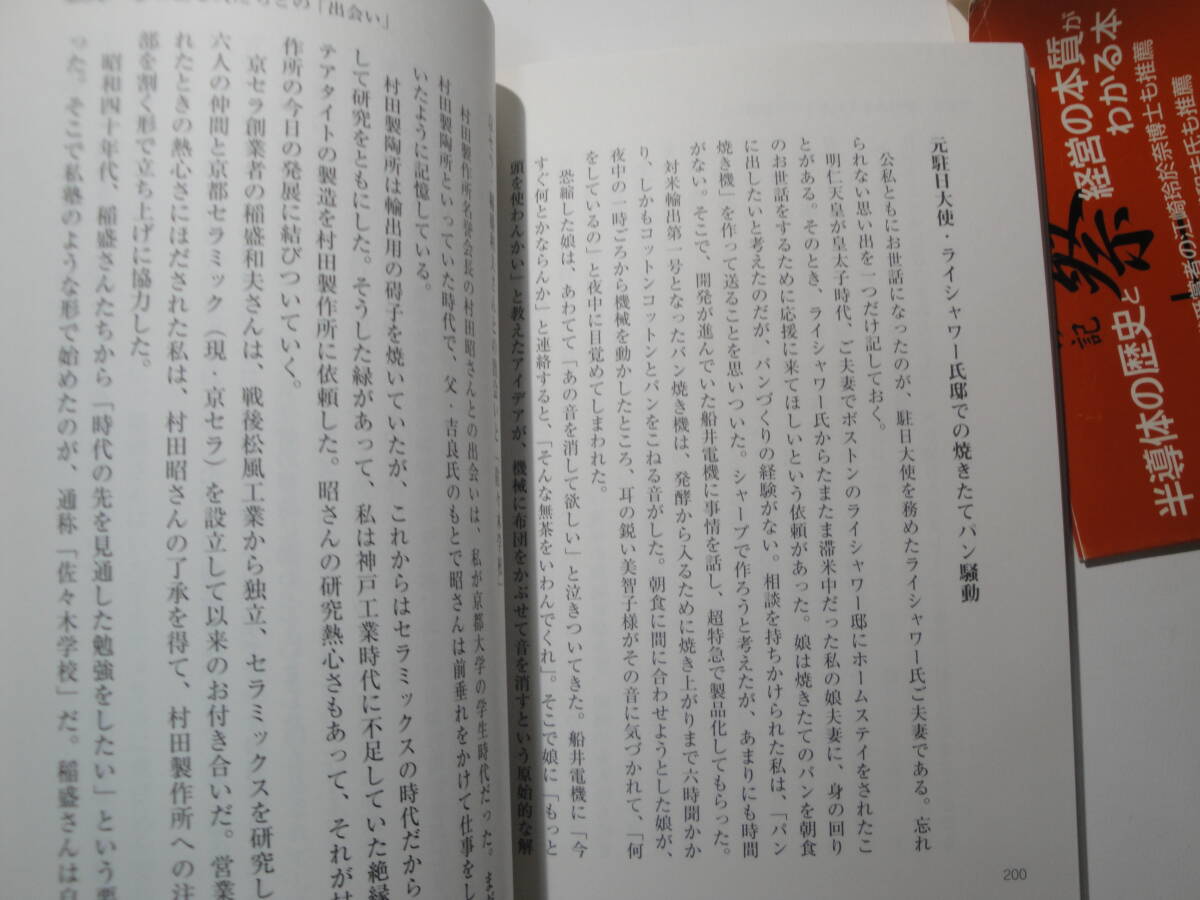 元駐日大使・ライシャワー氏邸での焼きたてパン騒動
公私ともにお世話になったのが、駐日大使を務めたライシャワー氏ご夫妻である。忘れ
られない思い出を一つだけ記しておく。
明仁天皇が皇太子時代、ご夫妻でボストンのライシャワー邸にホームステイをされたこ
とがある。そのとき、ライシャワー氏からたまたま滞米中だった私の娘夫妻に、身の回り
のお世話をするために応援に来てほしいという依頼があった。娘は焼きたてのパンを朝食
に出したいと考えたのだが、パンづくりの経験がない。相談を持ちかけられた私は、「パン
焼き機」を作って送ることを思いついた。シャープで作ろうと考えたが、あまりにも時間
がない。そこで、開発が進んでいた船井電機に事情を話し、超特急で製品化してもらった。
対米輸出第一号となったパン焼き機は、発酵から入るために焼き上がりまで六時間かか
り、しかもコットンコットンとパンをこねる音がした。朝食に間に合わせようとした娘が、
夜中の一時ごろから機械を動かしたところ、耳の鋭い美智子様がその音に気づかれて、「何
をしているの」と夜中に目覚めてしまわれた。
恐縮した娘は、あわてて「あの音を消して欲しい」と泣きついてきた。船井電機に「今
すぐ何とかならんか」と連絡すると、「そんな無茶をいわんでくれ」。そこで娘に「もっと
頭を使わんかい」と教えたアイデアが、機械に布団をかぶせて音を消すという原始的な解
200
の「出会い」
村田製作所名誉会長の村田昭さんとの出会いは、私が京都大学の学生時代だった。まだ
村田製陶所といっていた時代で、父・吉良氏のもとで昭さんは前垂れをかけて仕事をし
いたように記憶している。
村田製陶所は輸出用の碍子を焼いていたが、これからはセラミックスの時代だから
して研究をともにした。そうした縁があって、私は神戸工業時代に不足していた絶縁
テアタイトの製造を村田製作所に依頼した。昭さんの研究熱心さもあって、それが村
作所の今日の発展に結びついていく。
京セラ創業者の稲盛和夫さんは、戦後松風工業から独立、セラミックスを研究し
六人の仲間と京都セラミック（現・京セラ）を設立して以来のお付き合いだ。営業
れたときの熱心さにほだされた私は、村田昭さんの了承を得て、村田製作所への注
部を割く形で立ち上げに協力した。
昭和四十年代、稲盛さんたちから「時代の先を見通した勉強をしたい」という要
った。そこで私塾のような形で始めたのが、通称「佐々木学校」だ。稲盛さんは自
半導体の歴史と
経営の本質が
わかる本
記
祭
賞者の江崎玲於奈博士も推薦
氏も推薦